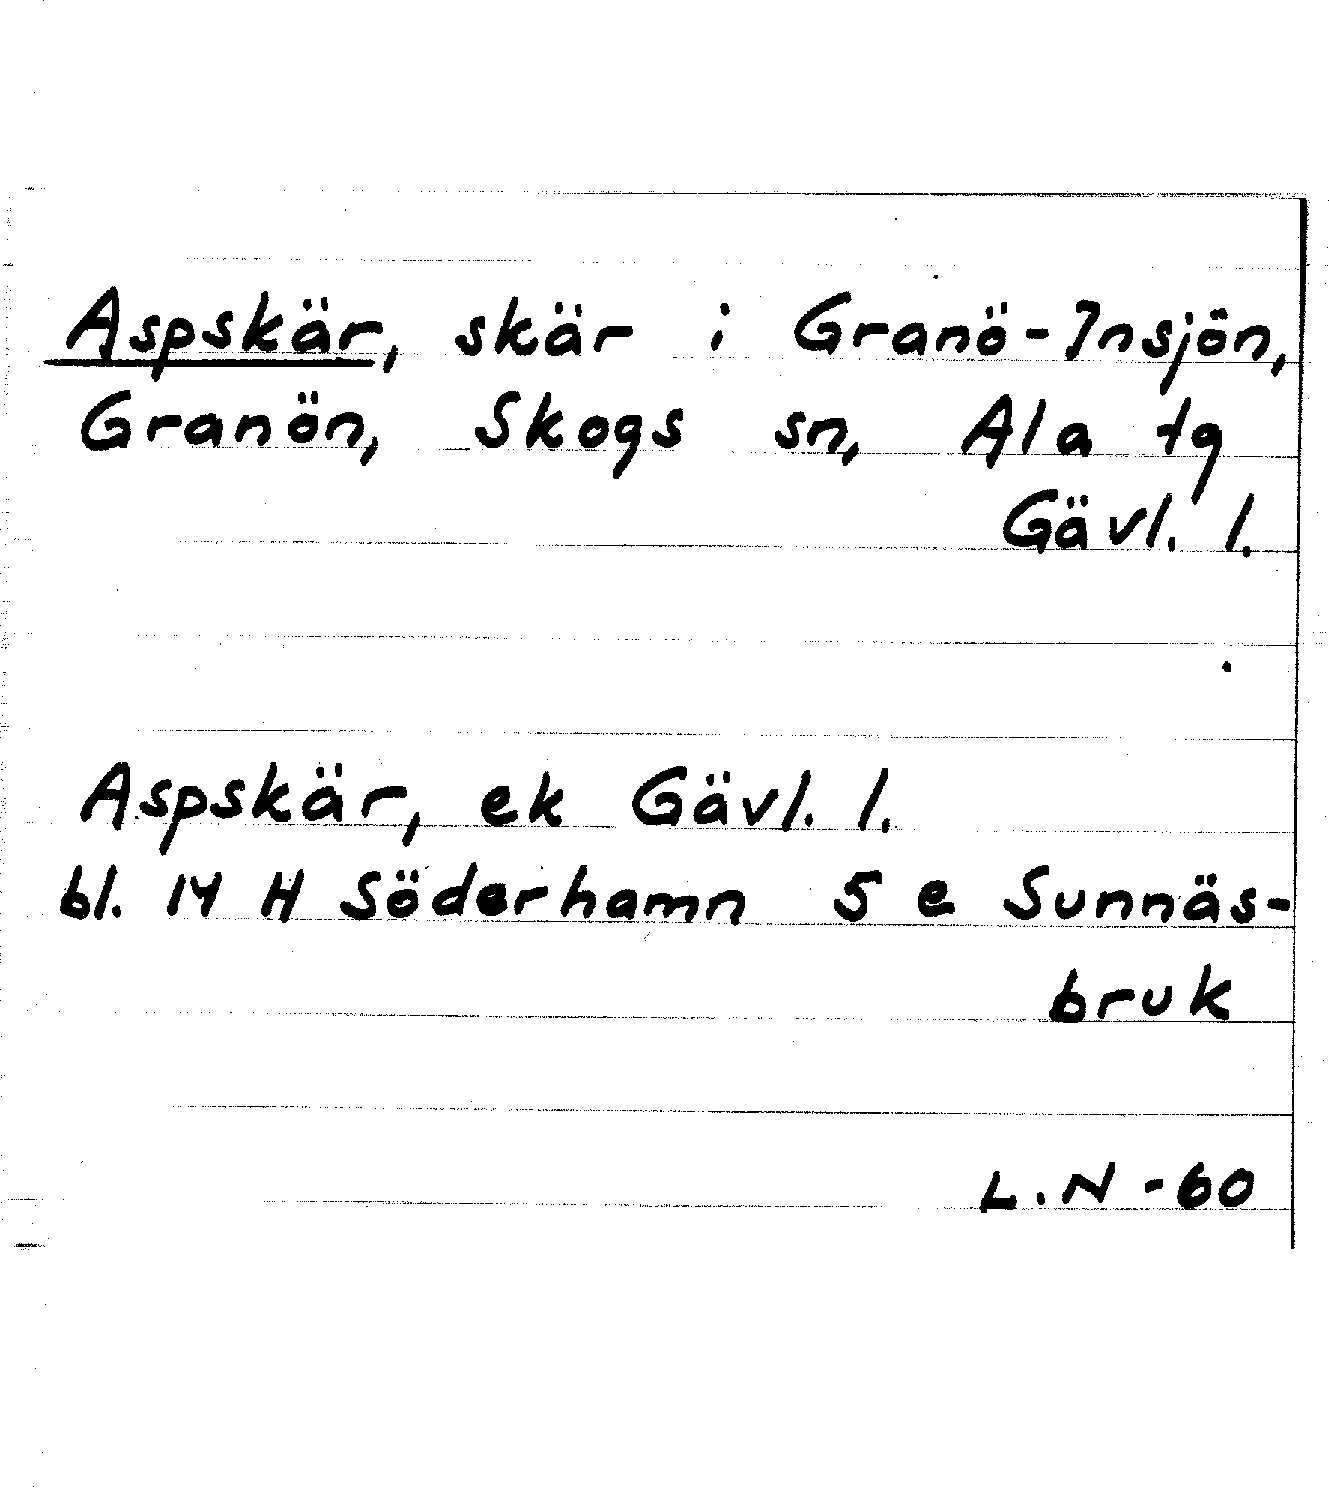 Aspskär, skär i Granö-Insjön,
Granön, Skogs sn, Ala tg
Gävl. l.
Aspskär, ek Gävl. l.
bl. 14 H Söderhamn 5 e Sunnäs-
bruk
L.N -60